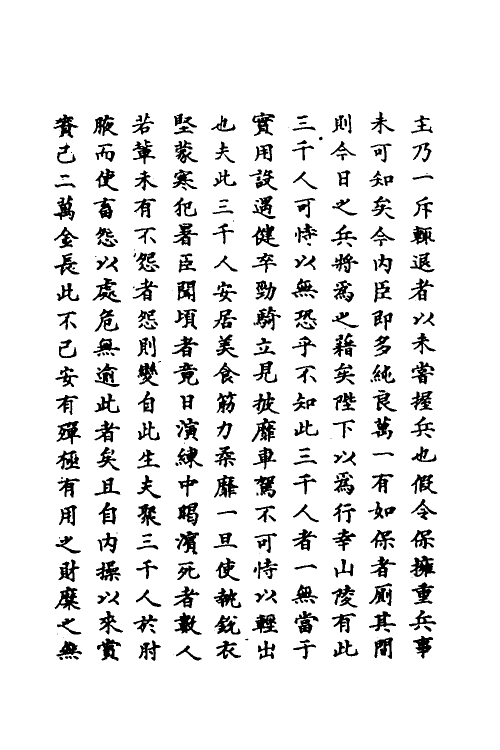 主乃一斥輒退者以未嘗握兵也假令保擁重兵事
未可知矣今內臣即多純良萬一有如保者厠其間
則今日之兵將爲之藉矣陛下以爲行幸山陵有此
三千人可恃以無恐乎不知此三千人者一無當于
實用設遇健卒勁騎立見披靡車駕不可恃以輕出
也夫此三千人安居美食筋力柔靡一旦使執銳衣
堅蒙寒犯暑臣聞頃者竟日演練中暍瀕死者數人
若輩未有不怨者怨則變自此生夫聚三千人於肘
腋而使畜怨以處危無逾此者矣且自內操以來賞
賚己二萬金長此不己安有殫極有用之財糜之無